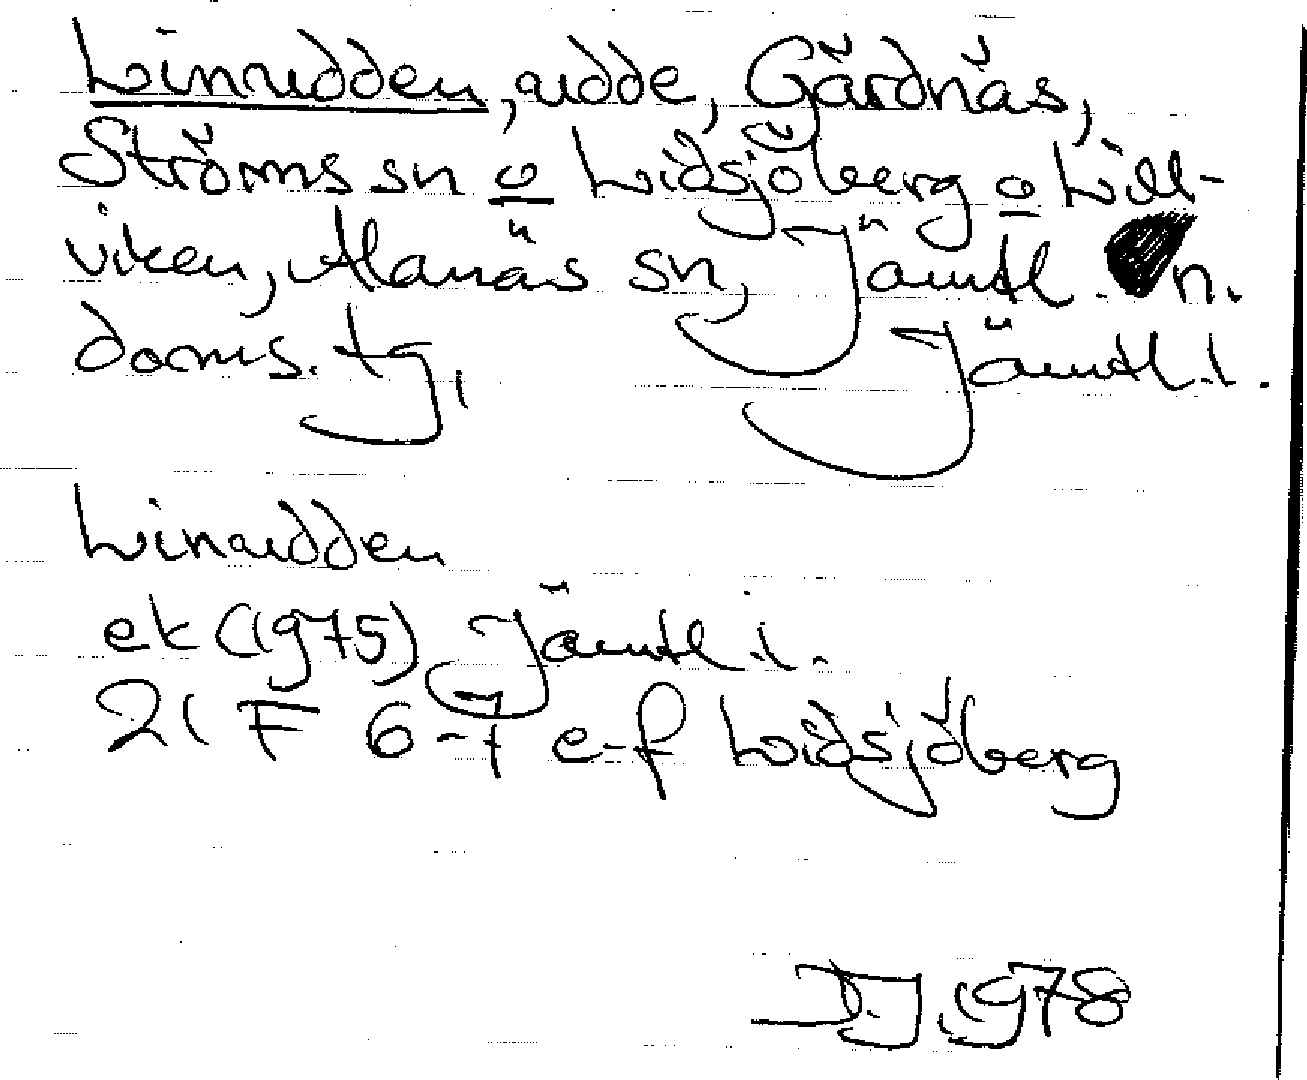 Linudden, udde, Gärdnäs,
Ströms sn o Lidsjöberg o Lill-
viken, Alanäs sn, Jämtl. n.
doms. tg, Jämtl. l.
Linudden
ek (1975) Jämtl. l.
21 F 6-7 e-f Lidsjöberg
DJ 1978